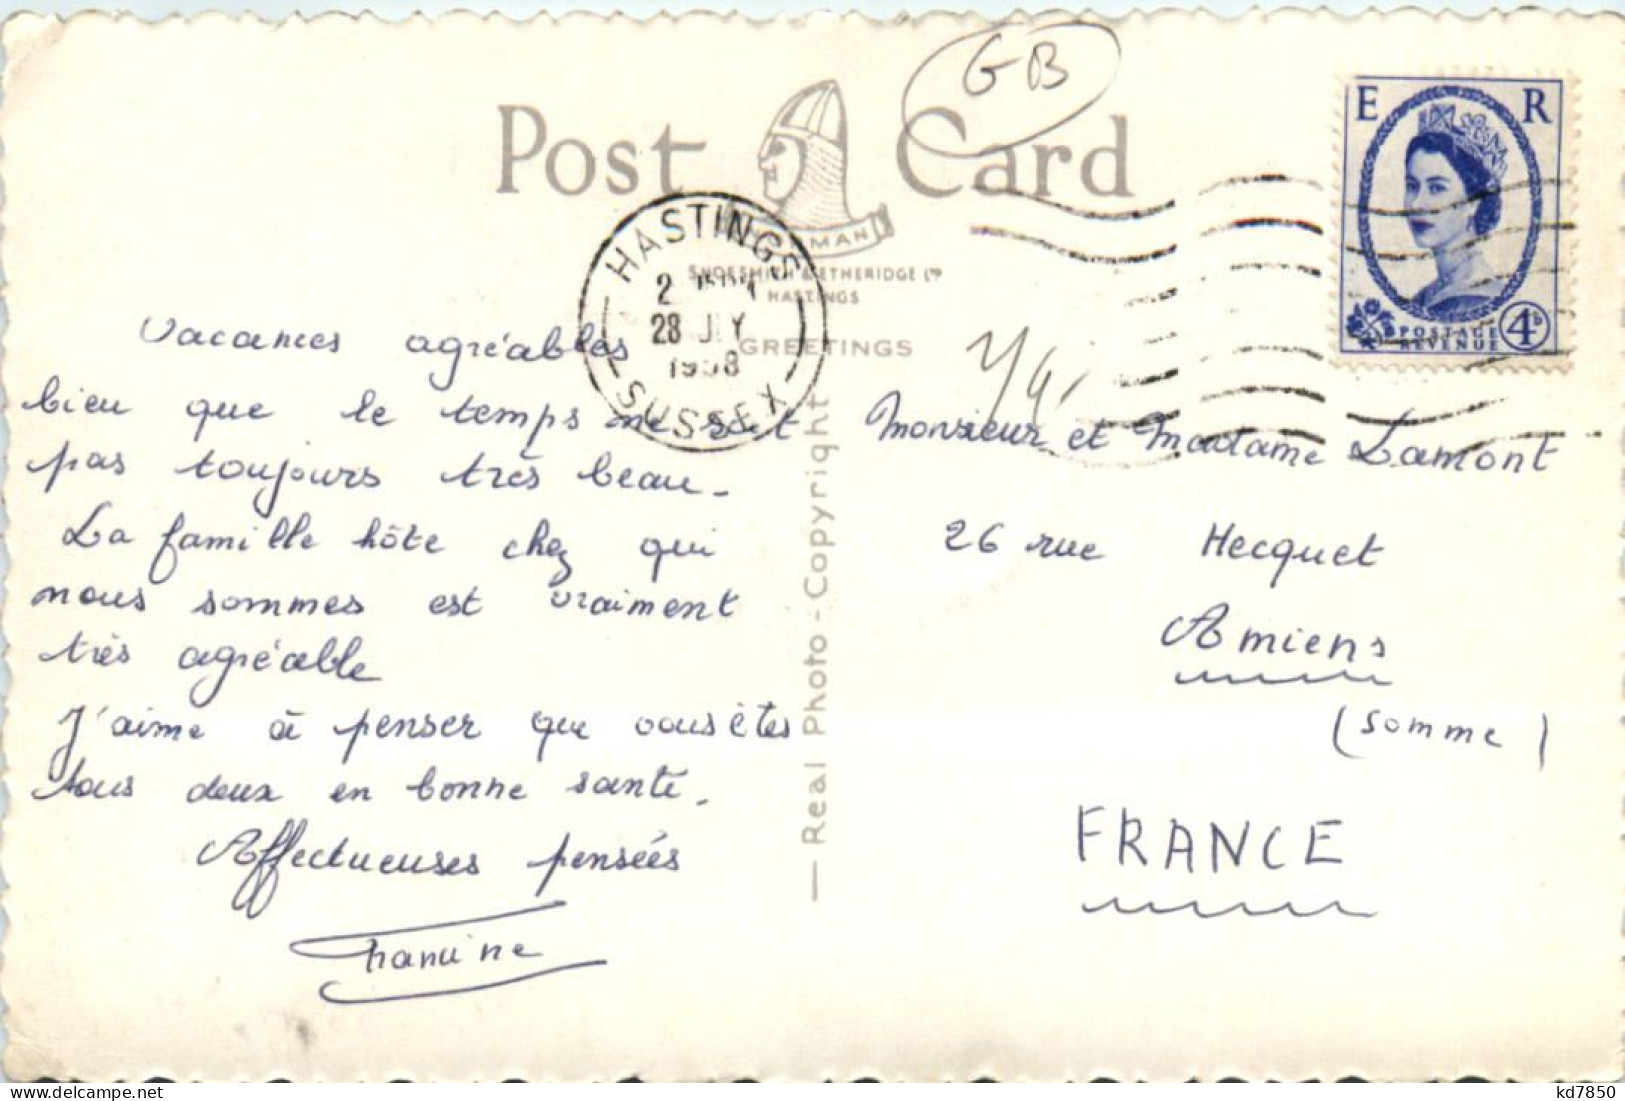 GB
Post Card
E R
HASTINGS
2
28 JLY
1958
SUSSEX
MAN
SHOESMITH & ETHERIDGE LTD
HASTINGS
GREETINGS
POSTAGE
REVENUE
4D
Vacances agréables
bien que le temps ne soit
pas toujours très beau.
La famille hôte chez qui
nous sommes est vraiment
très agréable
J'aime à penser que vous êtes
tous deux en bonne santé.
Affectueuses pensées
— Real Photo - Copyright
Monsieur et Madame Lamont
26 rue Hecquet
Amiens
(Somme)
FRANCE
kd7850